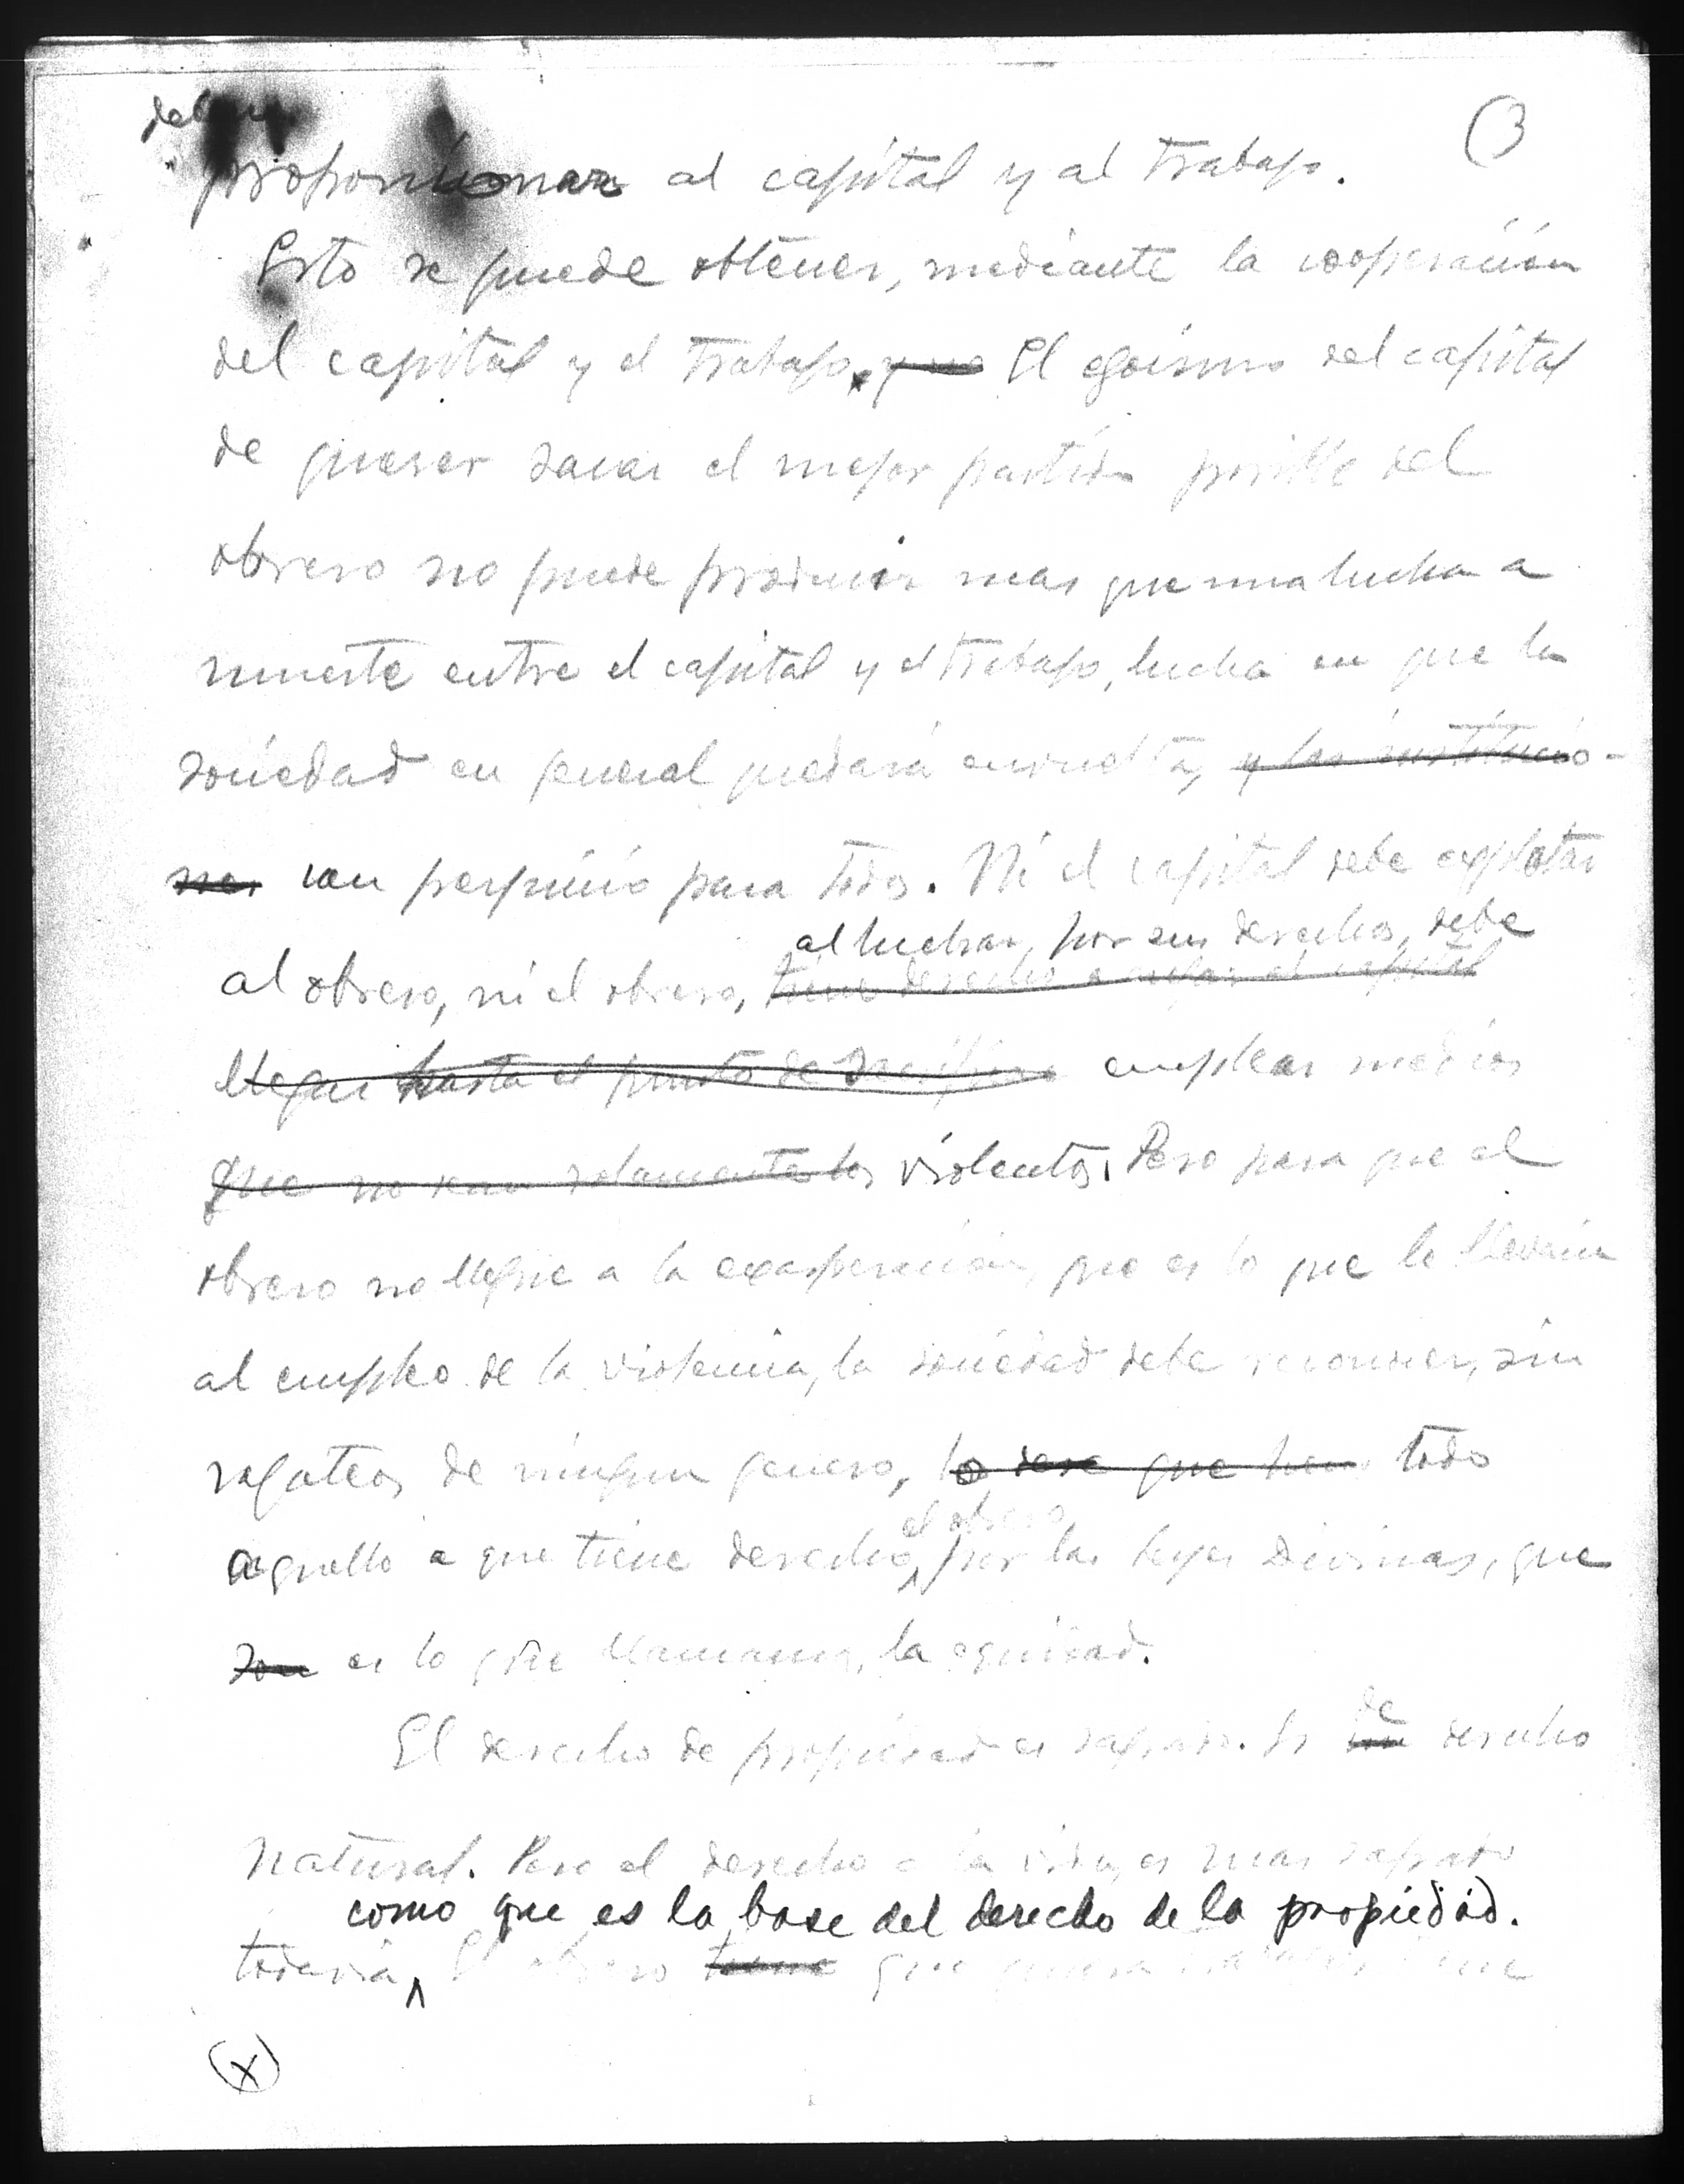 (3
proporcionar al capital y al trabajo.
Esto se puede obtener, mediante la cooperación
del capital y el trabajo, y no El egoismo del capital
de querer sacar el mejor partido posible del
obrero no puede producir mas que una lucha a
muerte entre el capital y el trabajo, lucha en que la
sociedad en general quedará envuelta, y las institucio-
nes con perjuicio para todos. Ni el capital debe explotar
al luchar, por sus derechos, debe
al obrero, ni el obrero, tiene derecho a capital
llegar hasta el punto de emplear medios
que no sean solamente los violentos. Pero para que el
obrero no llegue a la exasperación, que es lo que le llevaria
al empleo de la violencia, la sociedad debe reconocer, sin
regateos de ningun genero, todo
el obrero
aquello a que tiene derecho, por las leyes Divinas, que
son es lo que llamamos, la equidad.
de
El derecho de propiedad es sagrado. Es un derecho
natural. Pero el derecho a la vida, es mas sagrado
como que es la base del derecho de la propiedad.
todavia, El obrero tiene que quiera
(x)